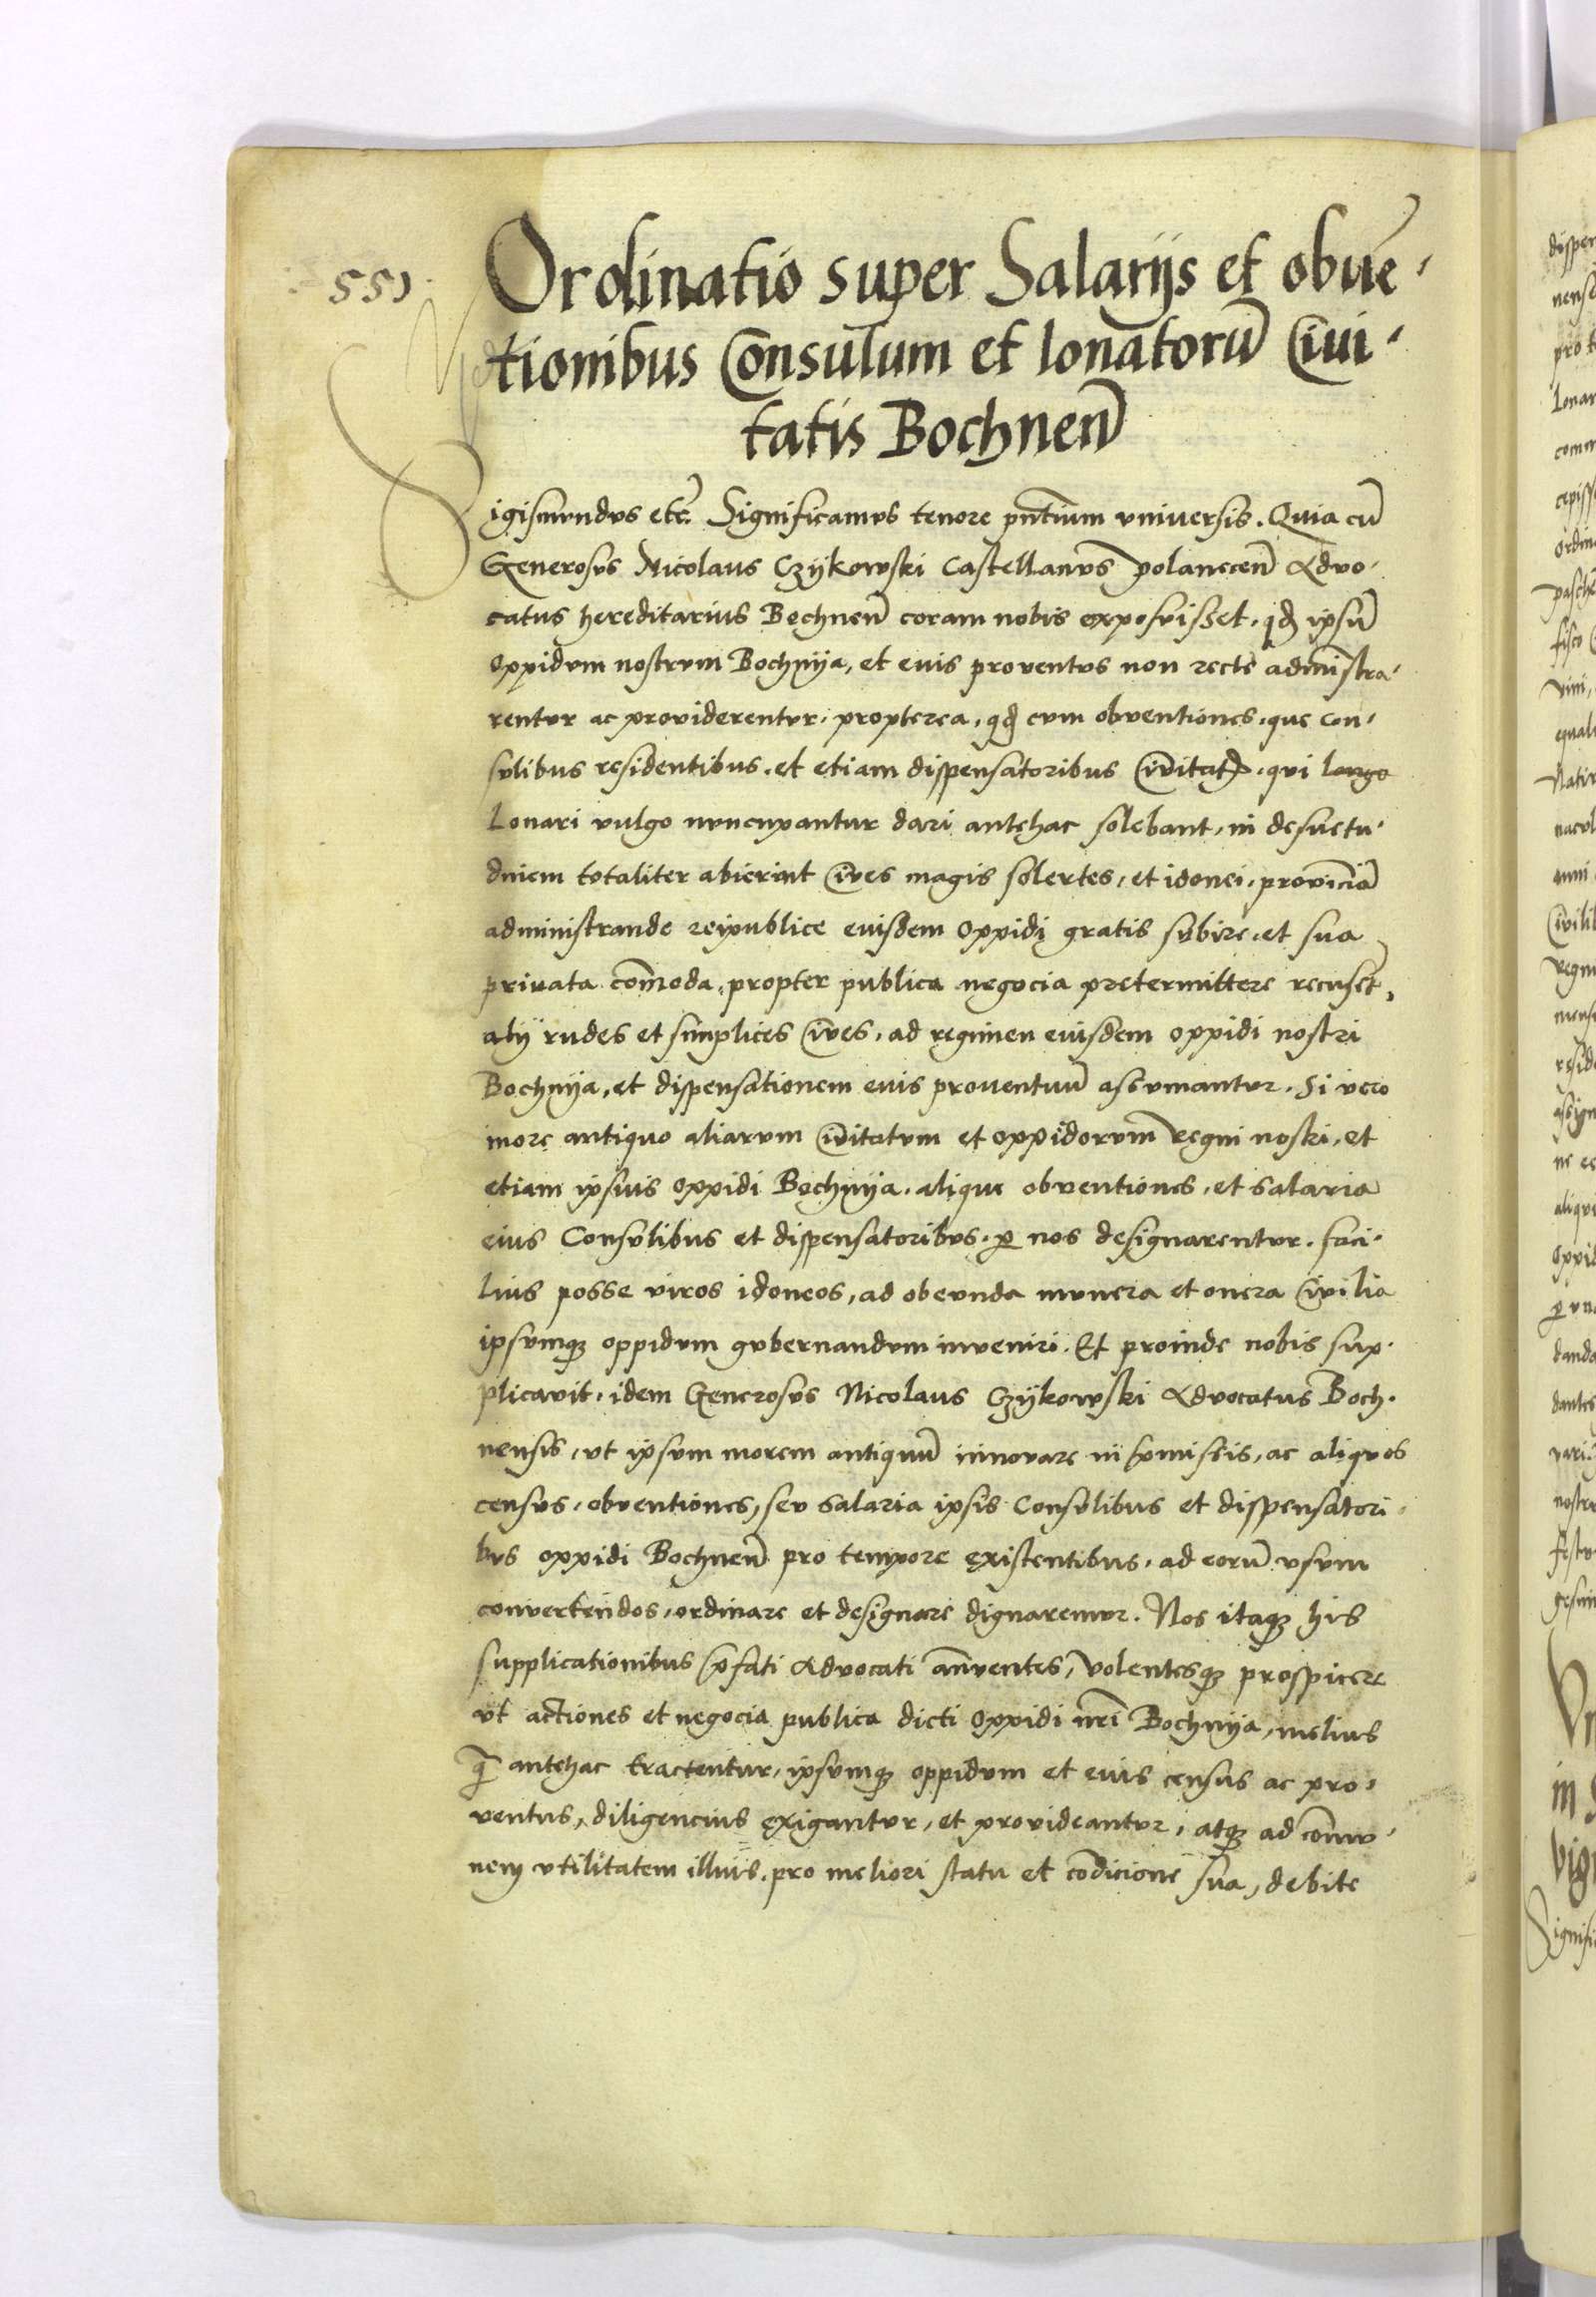 551.
Ordinatio super Salarijs et obuē-
tionibus Consulum et lonatorū Ciui-
tatis Bochnen̄
Sigismundus etc̄. Significamus tenore pn̄tium vniuersis. Quia cū
Generosus Nicolaus Czÿkowski Castellanus polanecen̄ Advo-
catus hereditarius Bochnen̄ coram nobis exposuisset. qd̄ ipsū
Oppidum nostrum Bochnÿa, et euis prouentus non recte adm̄istra-
rentur ac prouiderentur. propterea. qd̄ cum obuentiones. que Con-
sulibus residentibus. et etiam dispensatoribus Ciuitatꝭ. qui longo
Lonari vulgo nuncupantur dari antehac solebant, in desuetu-
dniem totaliter abierint Ciues magis solertes, et idonei. prouinciā
administrande reipublice euisdem Oppidi gratis subire. et sua
priuata com̄oda, propter publica negocia pretermittere recusēt,
alÿ rudes et simplices Ciues, ad regimen euisdem oppidi nostri
Bochnÿa, et dispensationem euis prouentuū assumantur. Si vero
more antiquo aliarum Ciuitatum et oppidorum regni nostri, et
etiam ipsuis oppidi Bochnÿa. aliquę obuentiones, et salaria
eius Consulibus et dispensatoribus. ꝑ nos designarentur. faci-
lius posse viros idoneos, ad obeunda munera et onera Ciuilia
ipsumqꝫ oppidum gubernandum inueniri. Et proinde nobis sup-
plicauit. idem Generosus Nicolaus Czÿkowski Advocatus Boch-
nensis, vt ipsum morem antiquū innouare in p̄missis, ac aliquos
census, obuentiones, seu salaria ipsis Consulibus et dispensatori-
bus oppidi Bochnen̄ pro tempore existentibus, ad eorū vsum
conuertendos, ordinare et designare dignaremur. Nos itaqꝫ his
supplicationibus p̄fati Advocati an̄uentes, volentesqꝫ prospicere
vt actiones et negocia publica dicti Oppidi nr̄i Bochnÿa, melius
q̄ antehac tractentur, ipsumqꝫ oppidum et euis census ac pro-
uentus, diligencius exigantur, et prouideantur, atqꝫ ad com̄u-
nem vtilitatem illuis. pro meliori statu et cōdicione sua, debite